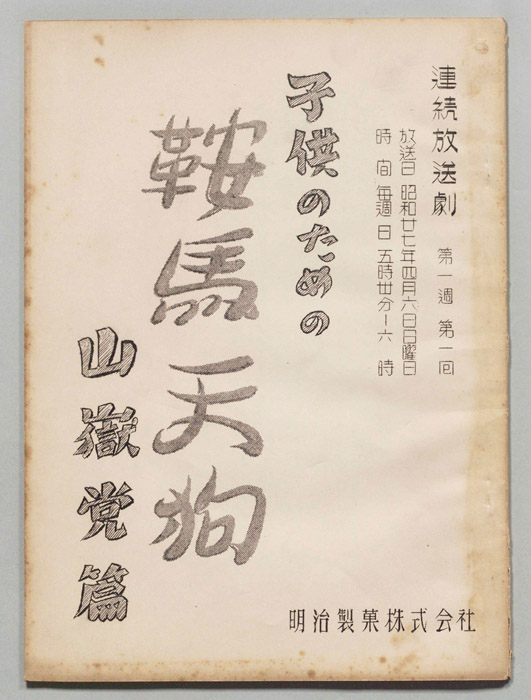 連続放送劇 第一週 第一回
放送日 昭和廿七年四月六日日曜日
時間 毎週日 五時卅分—六時
子供のための
鞍馬天狗
山嶽党篇
明治製菓株式会社